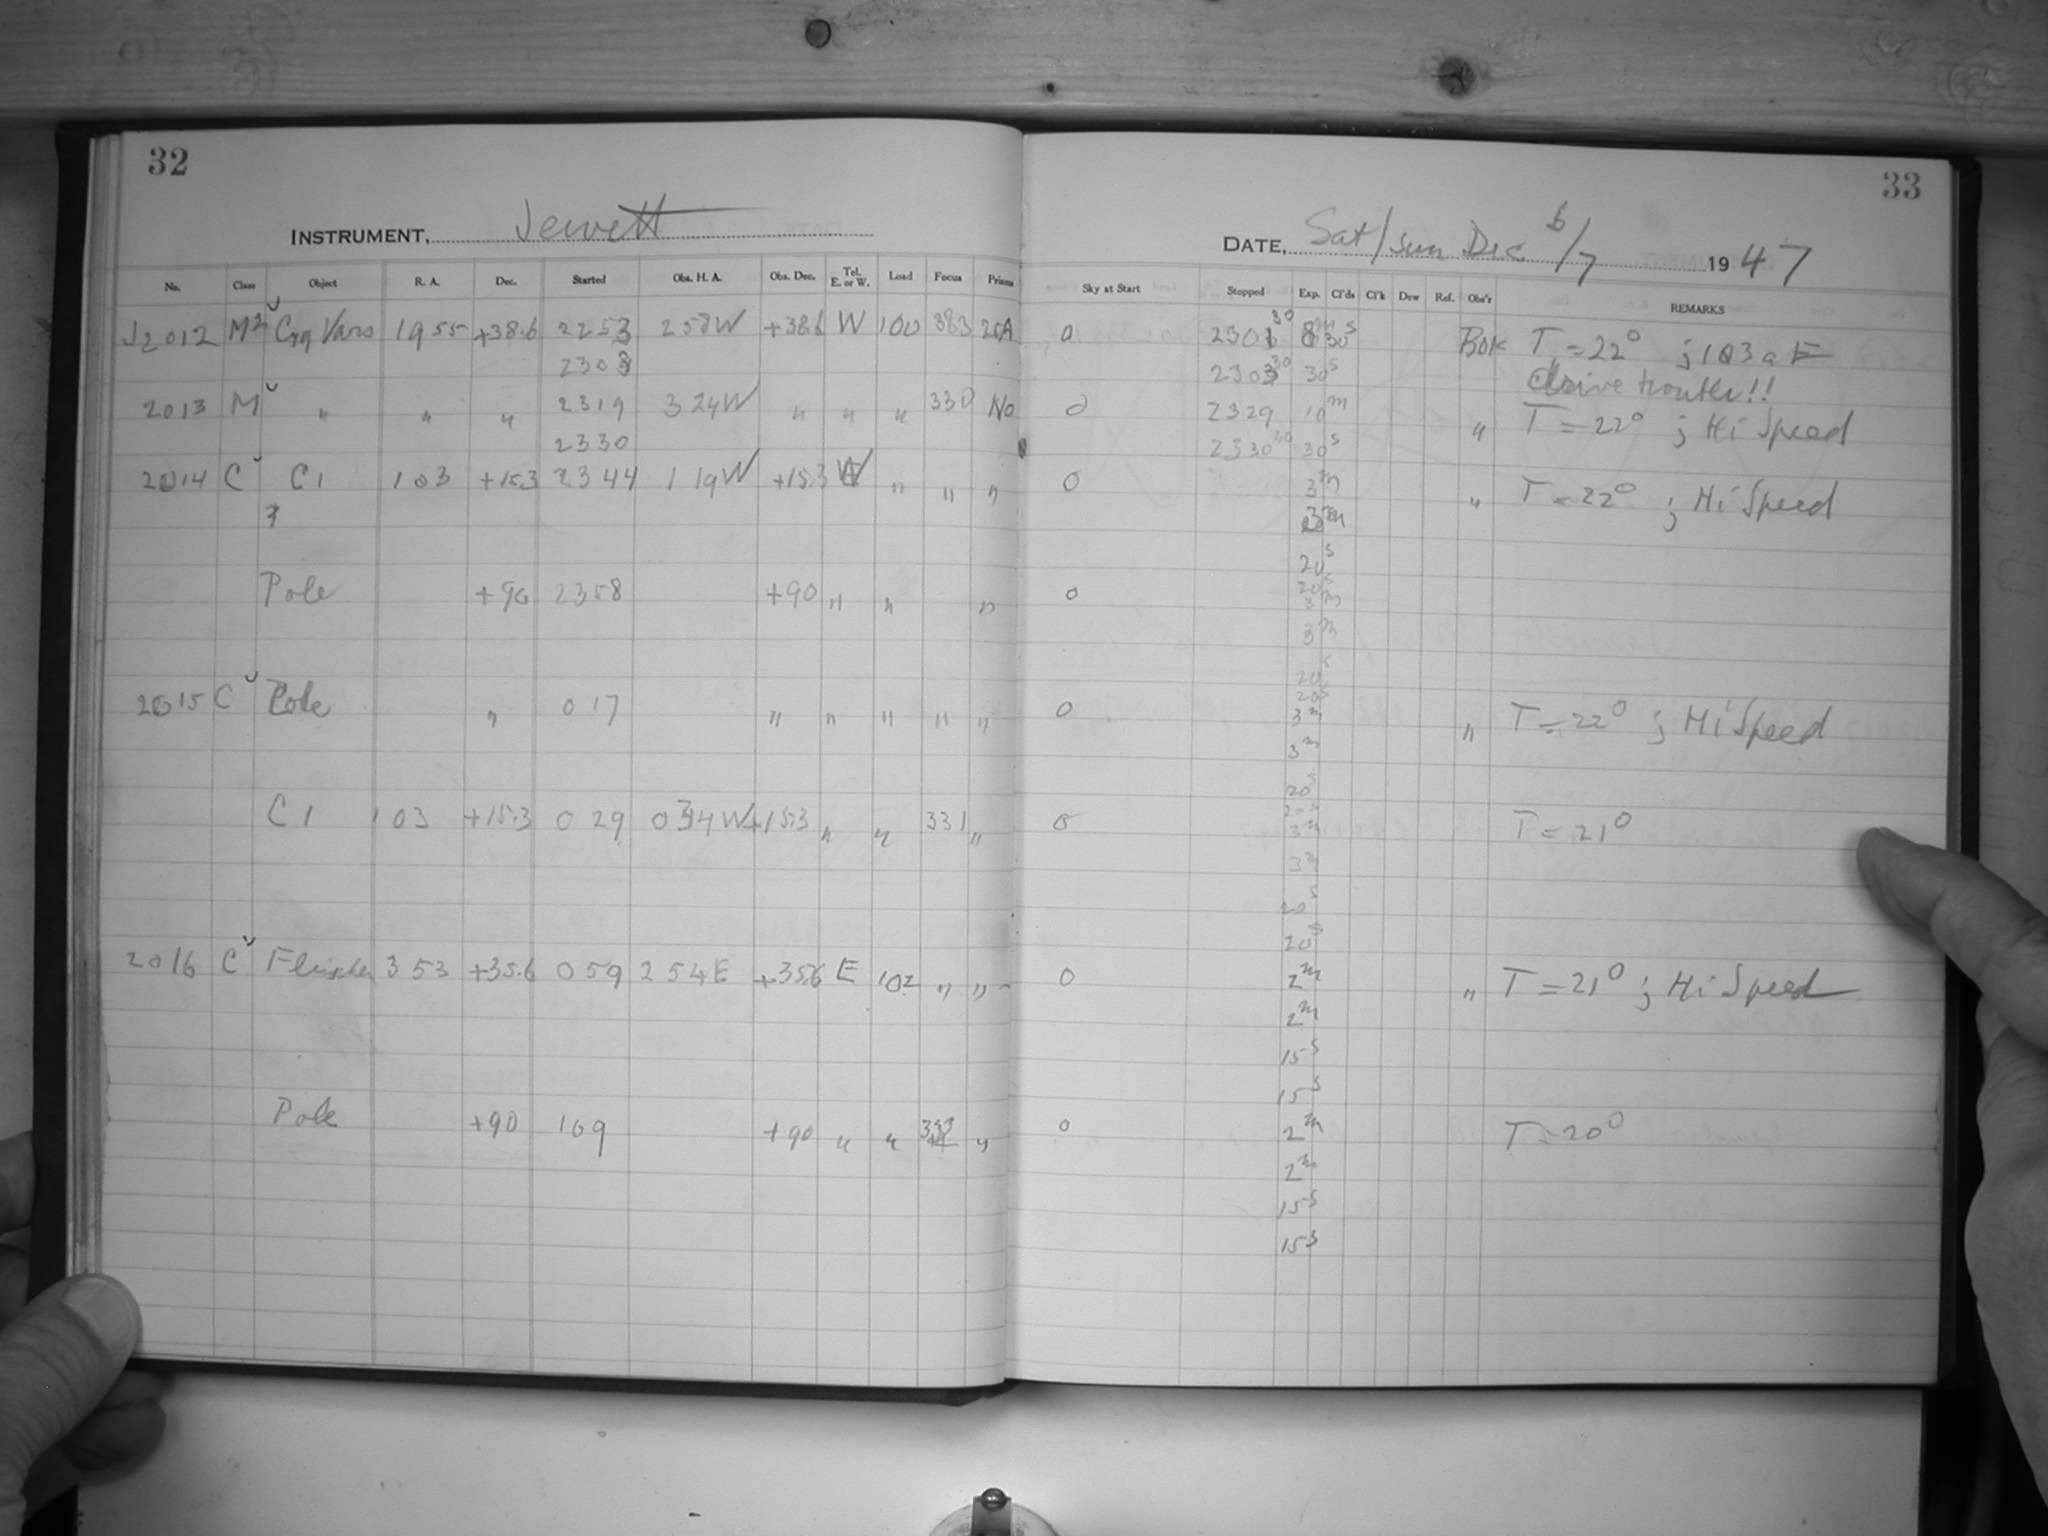 32
33
INSTRUMENT, Jewett
DATE, Sat/Sun Dec 6/7 1947
No. Class Object R. A. Dec. Started Obs. H. A. Obs. Dec. Tel. E. or W. Load Focus Prism Sky at Start Stopped Exp. Cl'ds Cl'k Dew Ref. Obs'r REMARKS
J2012 M² Cyg Vars 19 55 +38.6 2253 2 58W +38.6 W 100 383 20A 0 2301 30 8m 30s Bok T = 22° ; 103 a E
2303 2303 30 30s drive trouble!!
2013 M " " " 2319 3 24W " " " 330 No 0 2329 10m " T = 22° ; Hi Speed
2330 2330 30 30s
2014 C C1 1 03 +15.3 2344 1 19W +15.3 W " " " 0 3m " T = 22° ; Hi Speed
3m
20s
20s
Pole +90 2358 +90 " " " 0 3m
3m
20s
20s
2015 C Pole " 0 17 " " " " " 0 3m " T = 22° ; Hi Speed
3m
20s
20s
C1 1 03 +15.3 0 29 0 34W +15.3 " " 331 " 0 3m T = 21°
3m
20s
20s
2016 C 3 53 +35.6 0 59 2 54E +35.6 E 102 " " 0 2m " T = 21° ; Hi Speed
2m
15s
15s
Pole +90 1 09 +90 " " " 0 2m T = 20°
2m
15s
15s